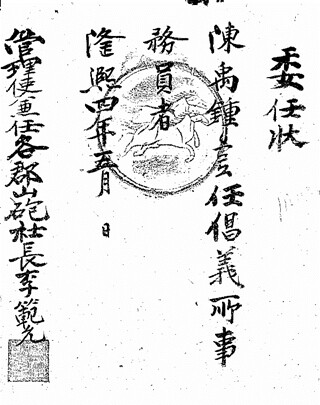 委任状
陳禹鍾差任倡義所事
務員者
隆熙四年五月 日
管理使兼任各郡山砲社長李範允